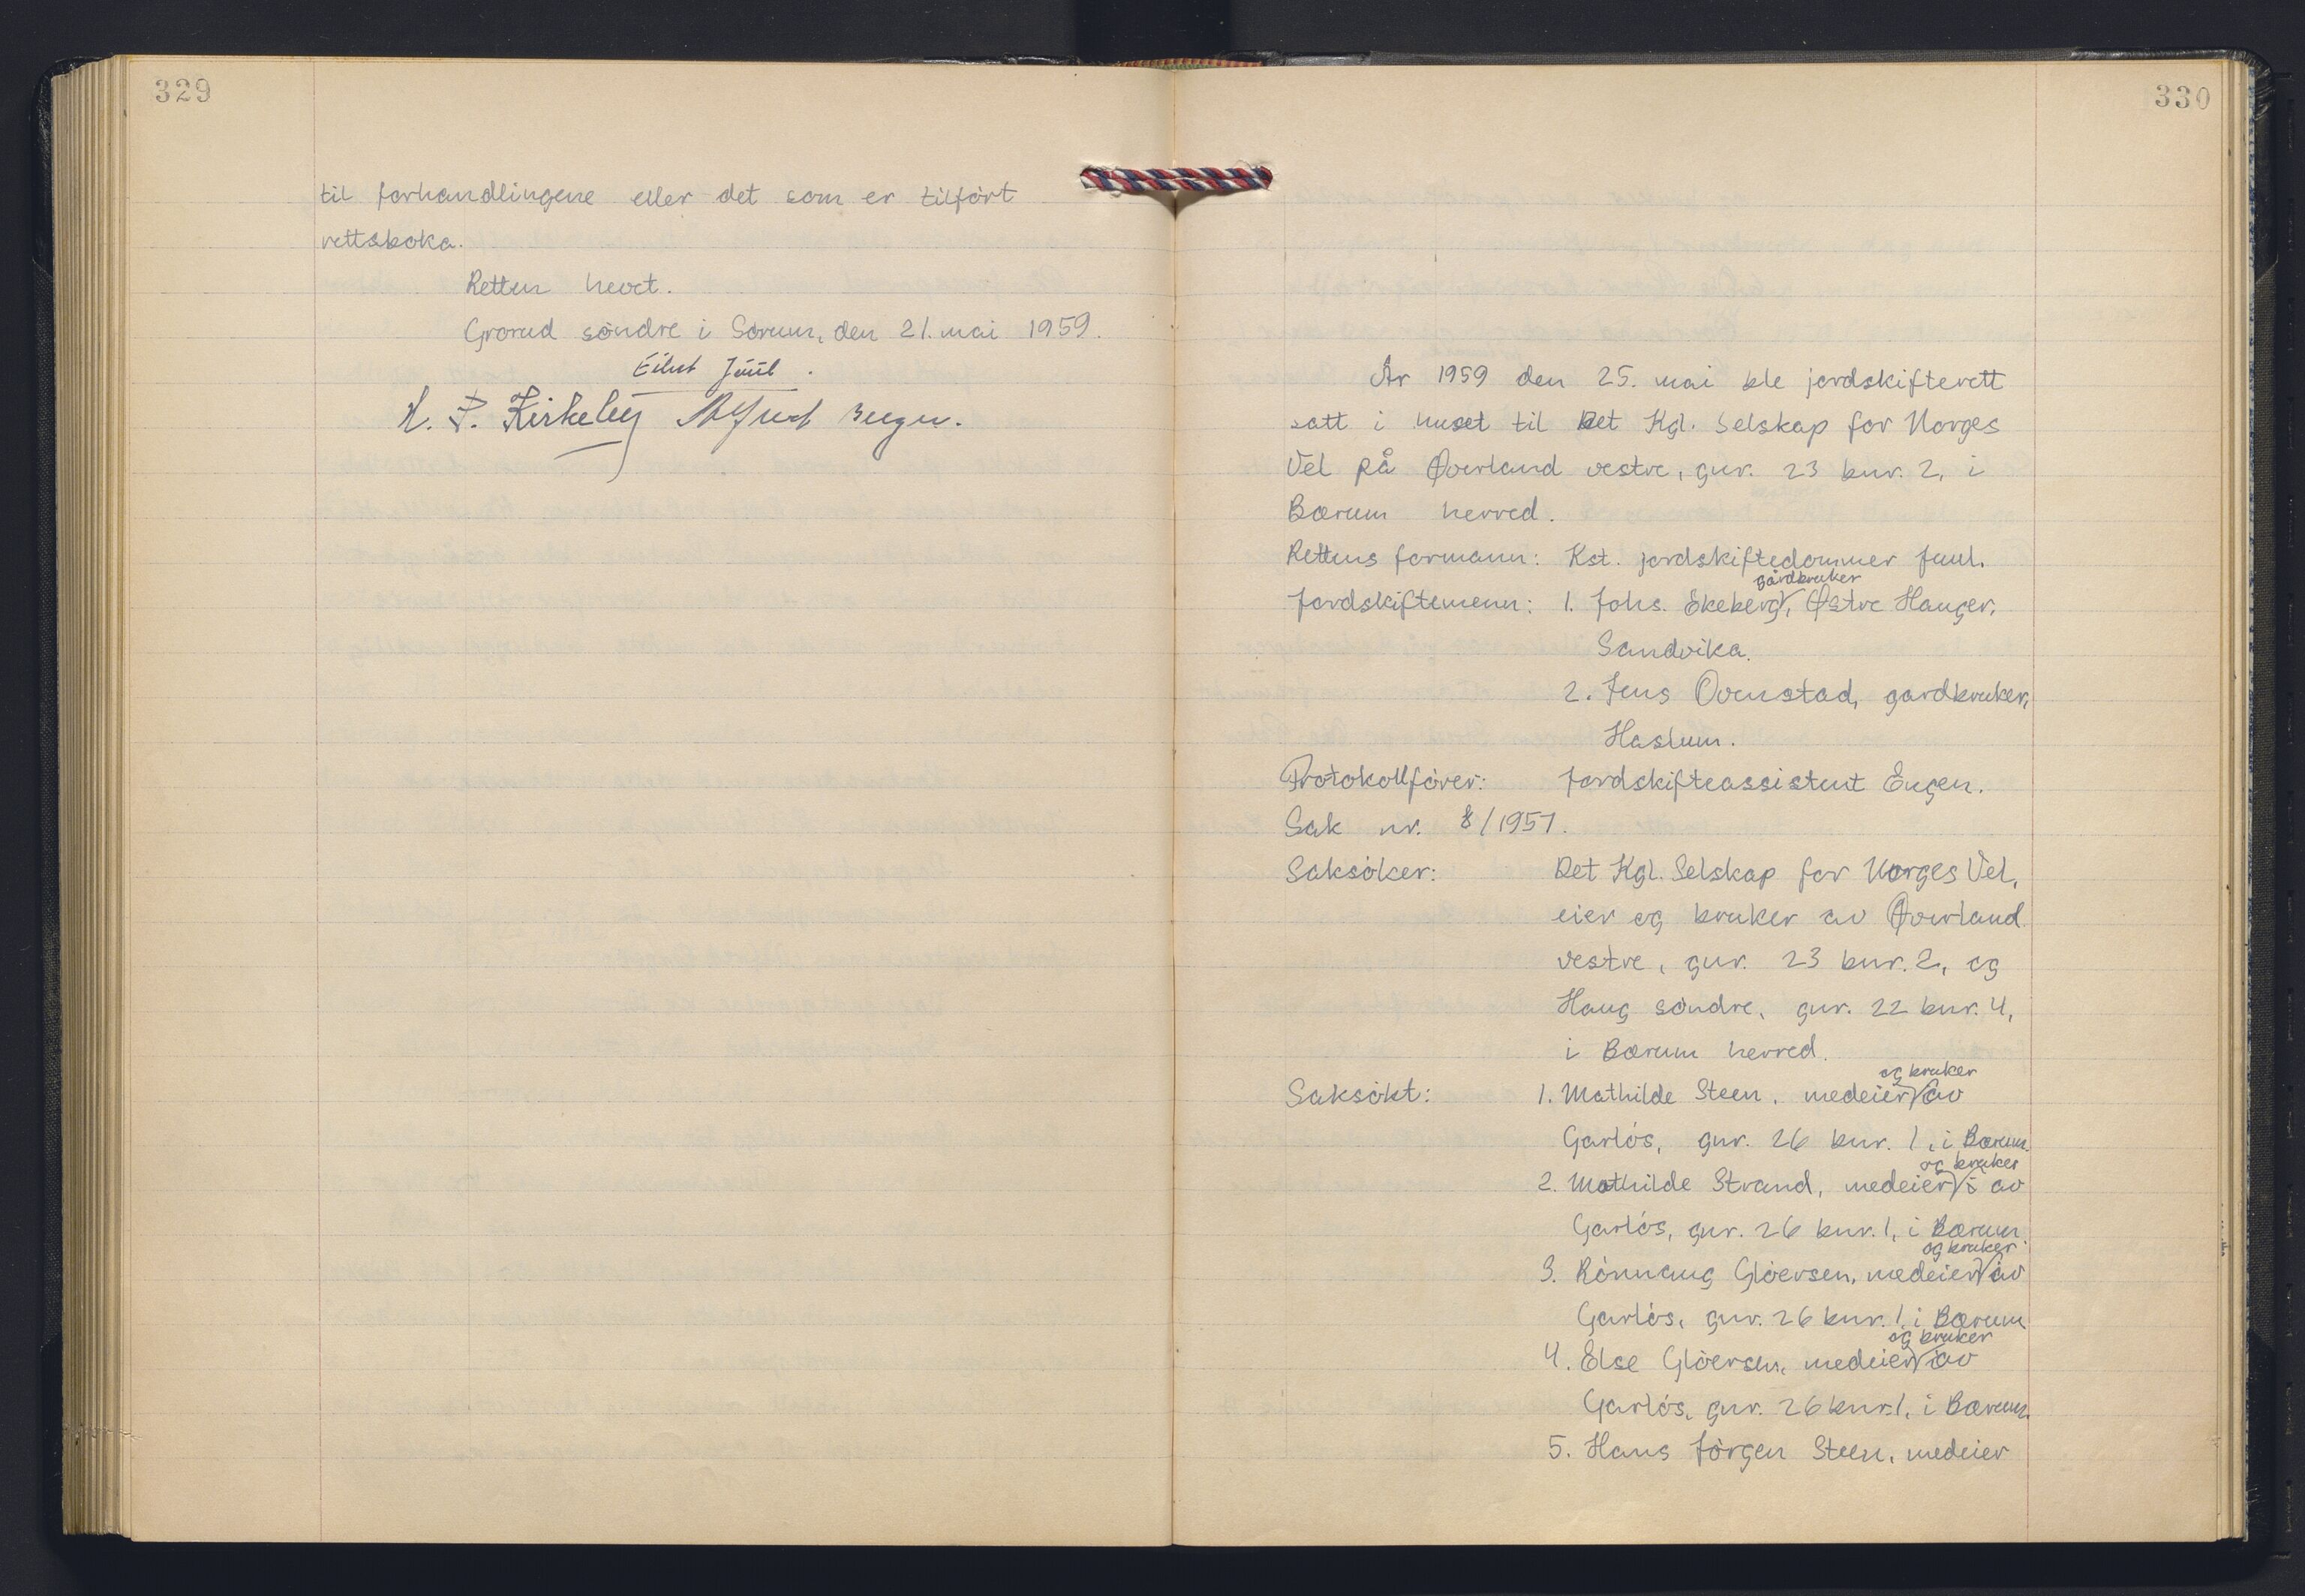 329
til forhandlingene eller det som er tilført
rettsboka.
Retten hevet.
Grorud söndre i Sørum, den 21. mai 1959.
Eilert Juul.
H. P. Kirkeby
330
År 1959 den 25. mai ble jordskifterett
satt i huset til Det Kgl. Selskap for Norges
Vel på Øverland vestre, gnr. 23 bnr. 2, i
Bærum herred.
Rettens formann: Kst. jordskiftedommer Juul.
gårdbruker
Jordskiftemenn: 1. Johs. Ekeberg, Østre Hauger,
Sandvika.
2. Jens Ovenstad, gardbruker,
Haslum.
Protokollförer: Jordskifteassistent Engen.
Sak nr. 8/1957.
Saksöker: Det Kgl. Selskap for Norges Vel,
eier og bruker av Øverland
vestre, gnr. 23 bnr. 2, og
Haug söndre, gnr. 22 bnr. 4,
i Bærum herred.
og bruker
Saksökt: 1. Mathilde Steen, medeier av
Garlös, gnr. 26 bnr. 1, i Bærum.
og bruker
2. Mathilde Strand, medeier av
Garlös, gnr. 26 bnr. 1, i Bærum.
og bruker
3. Rönnaug Glöersen, medeier av
Garlös, gnr. 26 bnr. 1, i Bærum
og bruker
4. Else Glöersen, medeier av
Garlös, gnr. 26 bnr. 1, i Bærum.
5. Hans Jörgen Steen, medeier